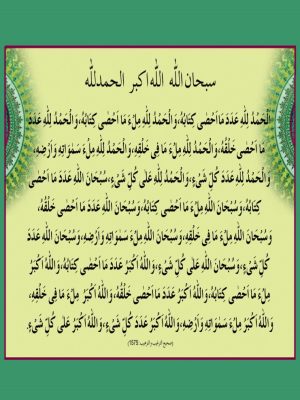 سبحان الله الله اكبر الحمدلله
اَلْحَمْدُ لِلّٰهِ عَدَدَ مَا اَحْصٰى كِتَابُهُ، وَالْحَمْدُ لِلّٰهِ مِلْءَ مَا اَحْصٰى كِتَابُهُ، وَالْحَمْدُ لِلّٰهِ عَدَدَ
مَا اَحْصٰى خَلْقُهُ، وَالْحَمْدُ لِلّٰهِ مِلْءَ مَا فِى خَلْقِهِ، وَالْحَمْدُ لِلّٰهِ مِلْءَ سَمٰوَاتِهِ وَاَرْضِهِ،
وَالْحَمْدُ لِلّٰهِ عَدَدَ كُلِّ شَىْءٍ، وَالْحَمْدُ لِلّٰهِ عَلٰى كُلِّ شَىْءٍ، سُبْحَانَ اللّٰهِ عَدَدَ مَا اَحْصٰى
كِتَابُهُ، وَسُبْحَانَ اللّٰهِ مِلْءَ مَا اَحْصٰى كِتَابُهُ، وَسُبْحَانَ اللّٰهِ عَدَدَ مَا اَحْصٰى خَلْقُهُ،
وَسُبْحَانَ اللّٰهِ مِلْءَ مَا فِى خَلْقِهِ، وَسُبْحَانَ اللّٰهِ مِلْءَ سَمٰوَاتِهِ وَاَرْضِهِ، وَسُبْحَانَ اللّٰهِ عَدَدَ
كُلِّ شَىْءٍ، وَسُبْحَانَ اللّٰهِ عَلٰى كُلِّ شَىْءٍ، وَاللّٰهُ اَكْبَرُ عَدَدَ مَا اَحْصٰى كِتَابُهُ، وَاللّٰهُ اَكْبَرُ
مِلْءَ مَا اَحْصٰى كِتَابُهُ، وَاللّٰهُ اَكْبَرُ عَدَدَ مَا اَحْصٰى خَلْقُهُ، وَاللّٰهُ اَكْبَرُ مِلْءَ مَا فِى خَلْقِهِ،
وَاللّٰهُ اَكْبَرُ مِلْءَ سَمٰوَاتِهِ وَاَرْضِهِ، وَاللّٰهُ اَكْبَرُ عَدَدَ كُلِّ شَىْءٍ، وَاللّٰهُ اَكْبَرُ عَلٰى كُلِّ شَىْءٍ.
(صحيح الترغيب والترهيب: 1575)